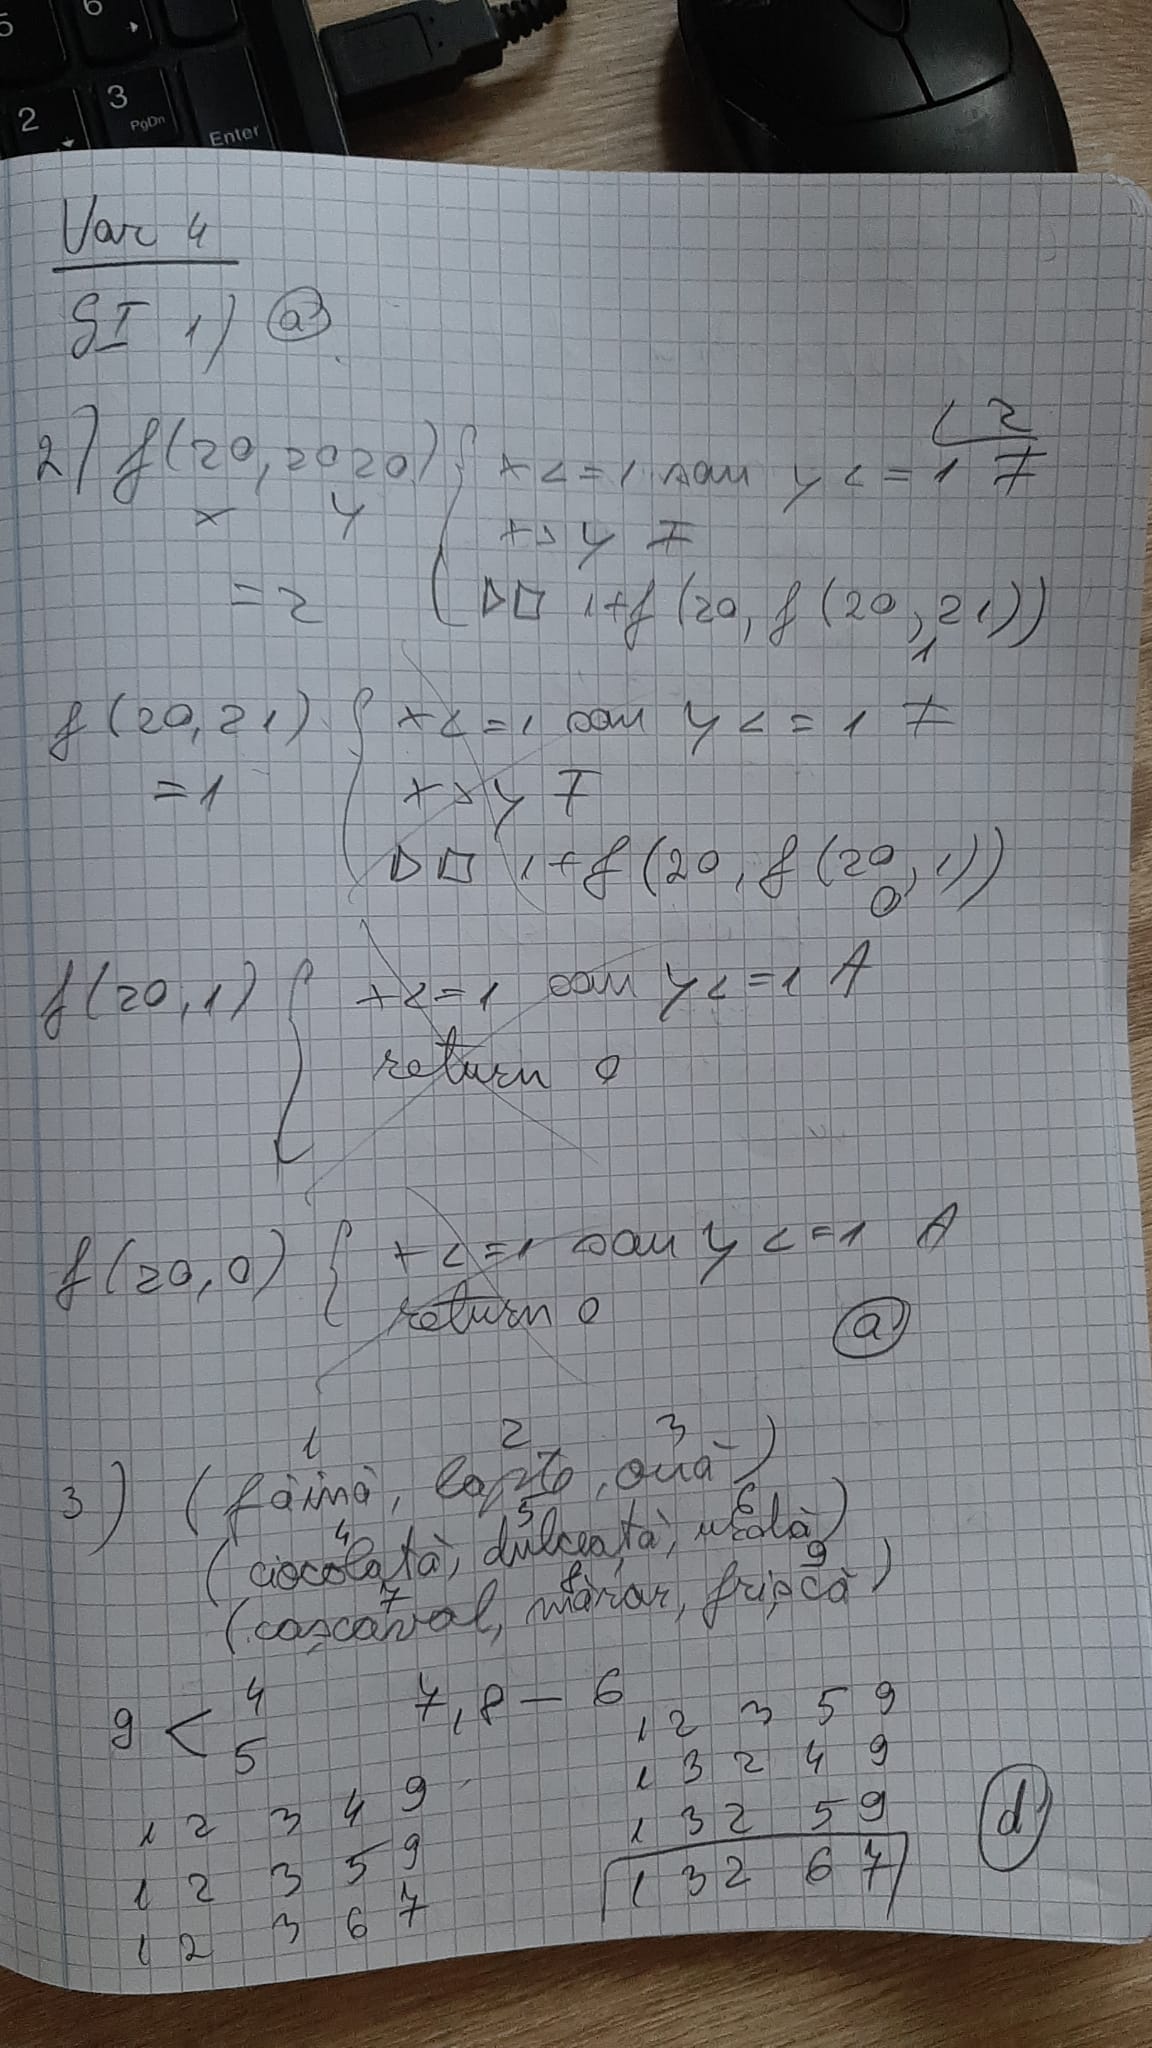 5
6
2
3
PgDn
Enter
Var 4
SI 1) a
2) f(20, 2020) { x <= 1 sau y <= 1 F
x y
x > y F
= 2
1+f(20, f(20, 21))
1
f(20, 21) { x <= 1 sau y <= 1 F
= 1
x > y F
1+f(20, f(20, 1))
0
f(20, 1) { x <= 1 sau y <= 1 A
return 0
f(20, 0) { x <= 1 sau y <= 1 A
return 0
a
1 2 3
3) (făină, lapte, ouă)
4 5 6
(ciocolată, dulceață,
7 8 9
(cașcaval, mărar, frișcă)
9 < 4 5
7, 8 – 6
1 2 3 4 9
1 2 3 5 9
1 2 3 6 7
1 2 3 5 9
1 3 2 4 9
1 3 2 5 9
1 3 2 6 7
d